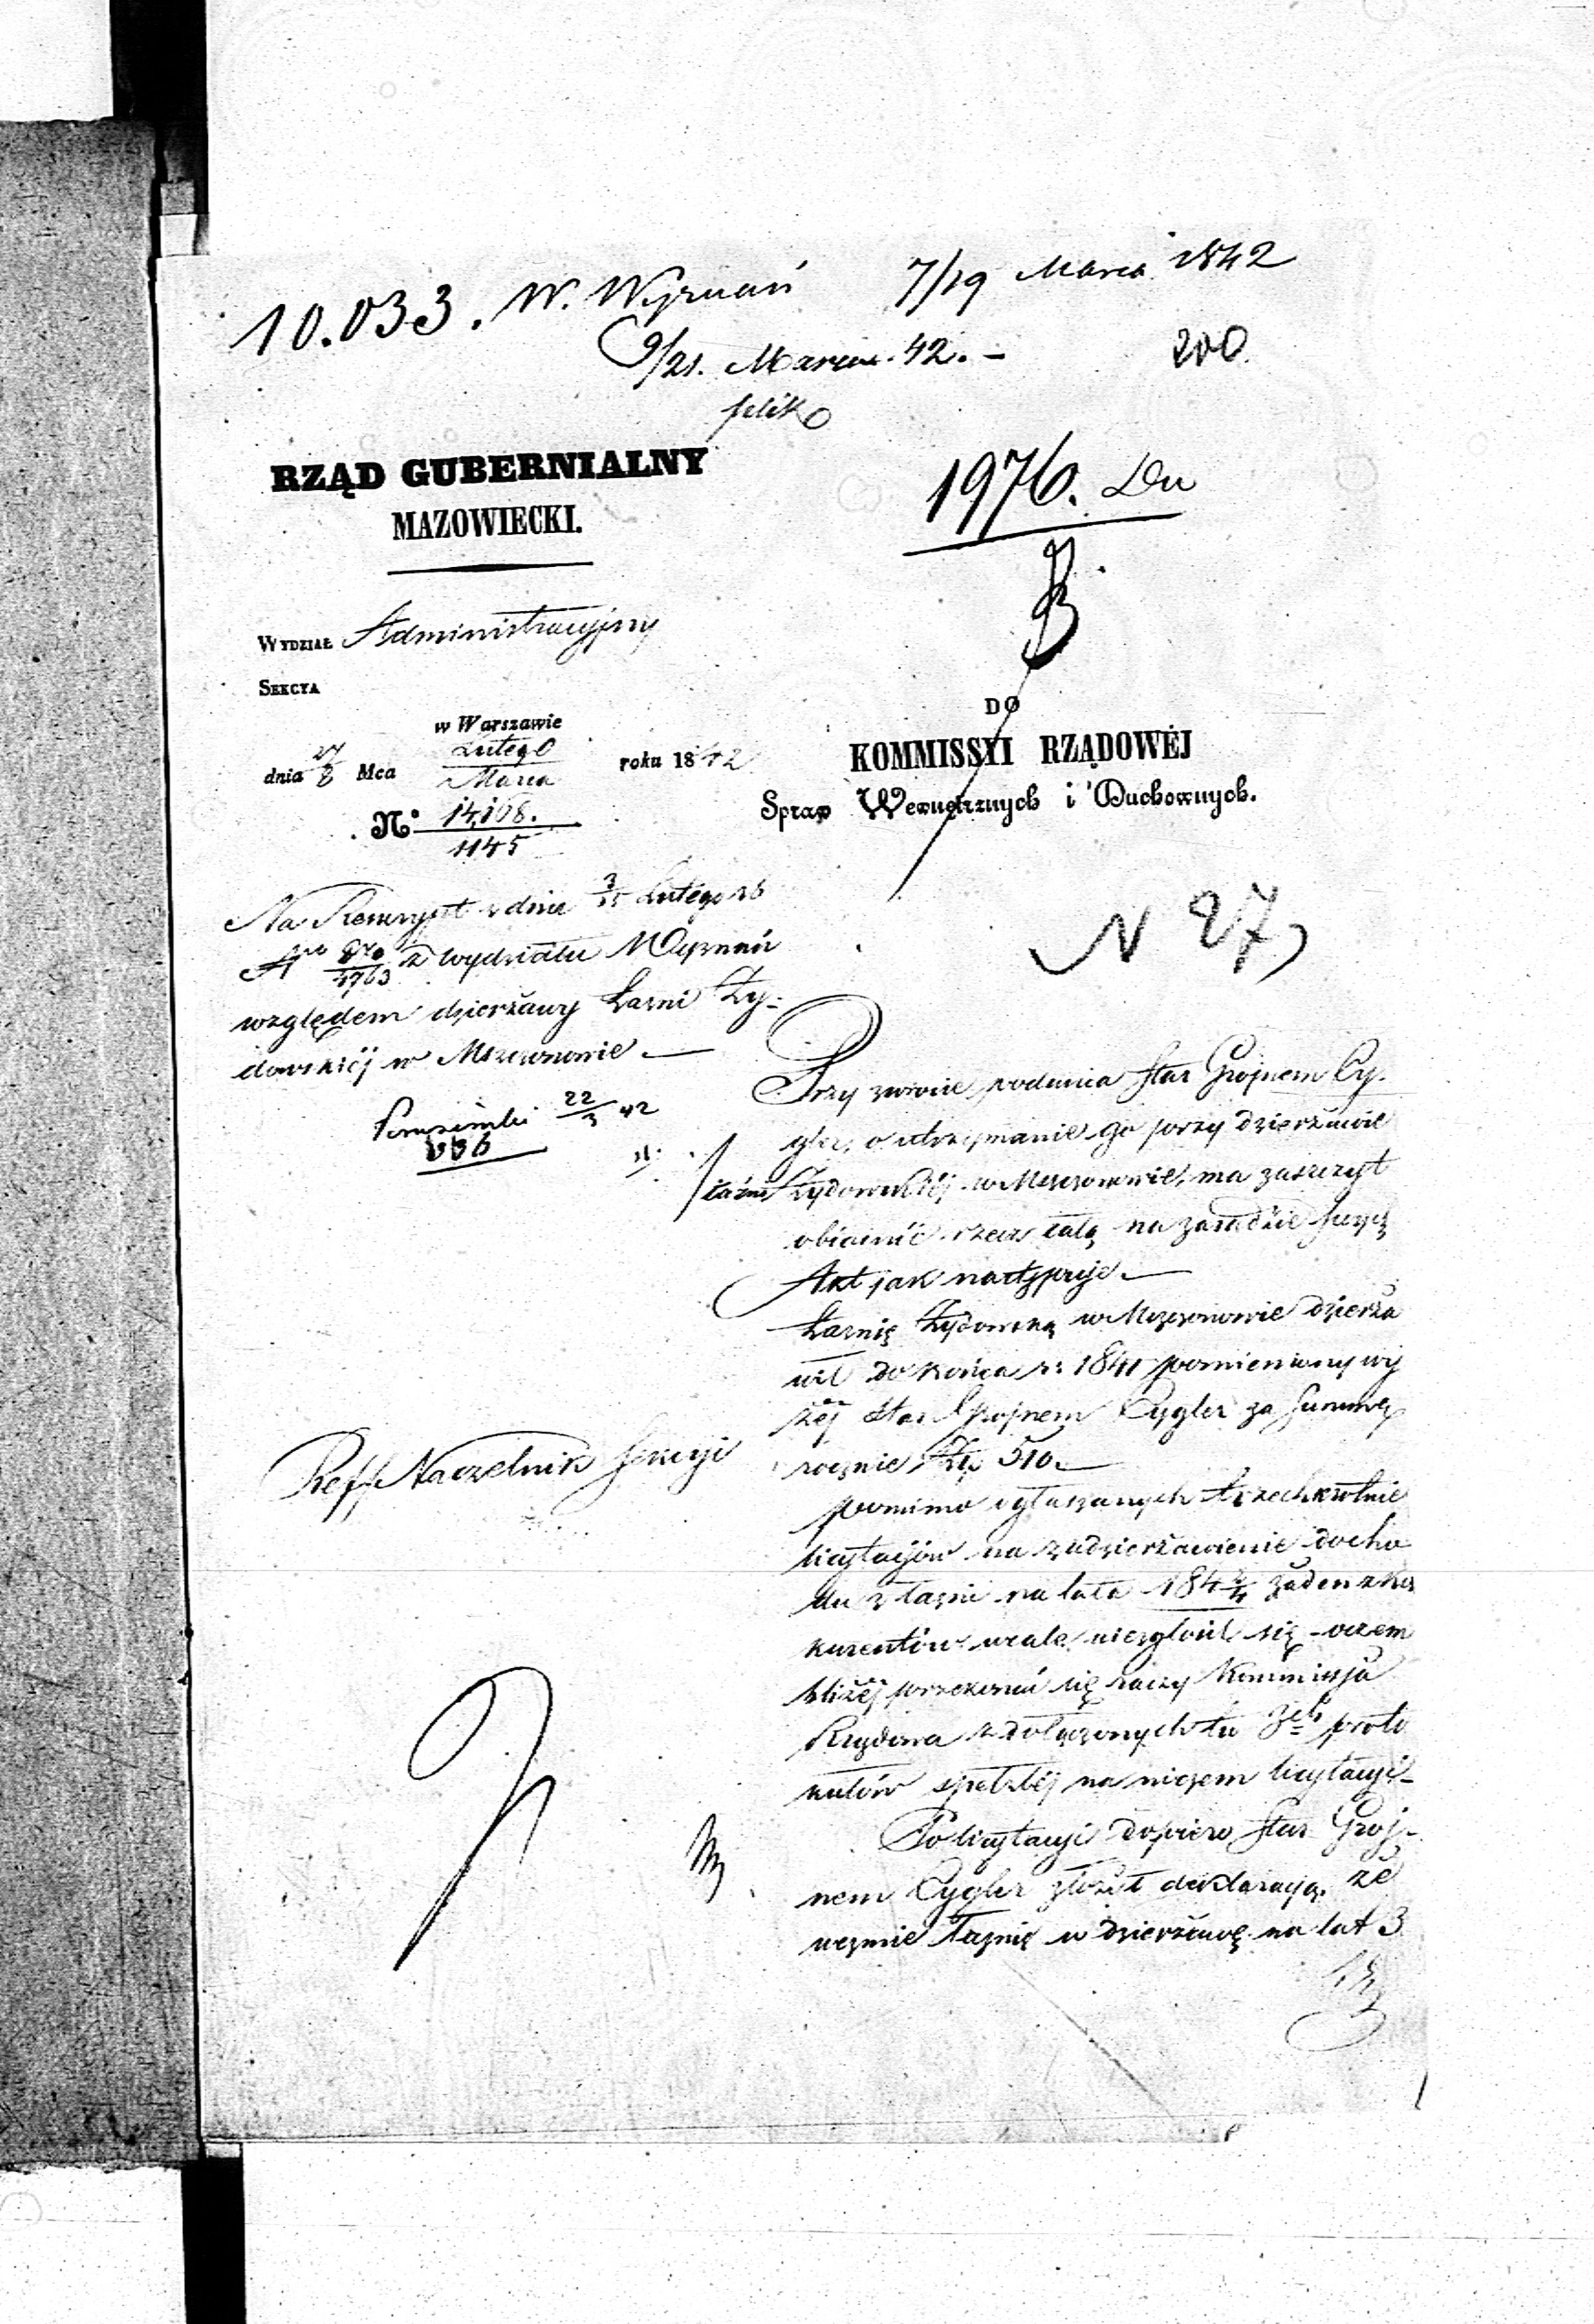 10.033. W. Wyznań 7/19 Marca 1842
9/21. Marca 42. – 200.
RZĄD GUBERNIALNY
MAZOWIECKI.
1976. Du
WYDZIAŁ Administracyjny
SEKCYA
w Warszawie
dnia Mca Lutego / Marca roku 1842
No 14,168. / 1145
DO
KOMMISSYI RZĄDOWÉJ
Spraw Wewnętrznych i Duchownych.
Na Reskrypt z dnia 3/15 Lutego rb
Nro 870/4763 z Wydziału Wyznań
względem dzierżawy Łazni Ży-
dowskiéj w Mszczonowie —
22/3 42
N 27
Przy zwrocie podania Star Grojnem Cy-
gler, o utrzymanie go przy dzierżawie
łaźni Żydowskiéj w Mszczonowie, ma zaszczyt
obiaśnić rzecz całą na zasadzie swych
Akt jak następuje. —
Łaznię Żydowską w Mszczonowie dzierża
wił do końca r: 1841 pomieniony wy
żéj Star Grojnem Cygler za Summę
rocznie Złp 510. —
pomimo ogłaszanych trzechkrotnie
licytacyów na zadzierżawienie docho
du z łazni na lata 1842/4 żaden z kon
kurentów wcale niezgłosił się – o czem
bliżéj przekonać się raczy Kommissja
Rządowa z dołączonych tu 3ch proto
kułów spełzłéj na niczem licytacyi –
Po licytacyi dopiero Star Groj-
nem Cygler złożył deklaracyą, że
weźmie Łaznię w dzierżawę na lat 3
Reff Naczelnik Sekcyi